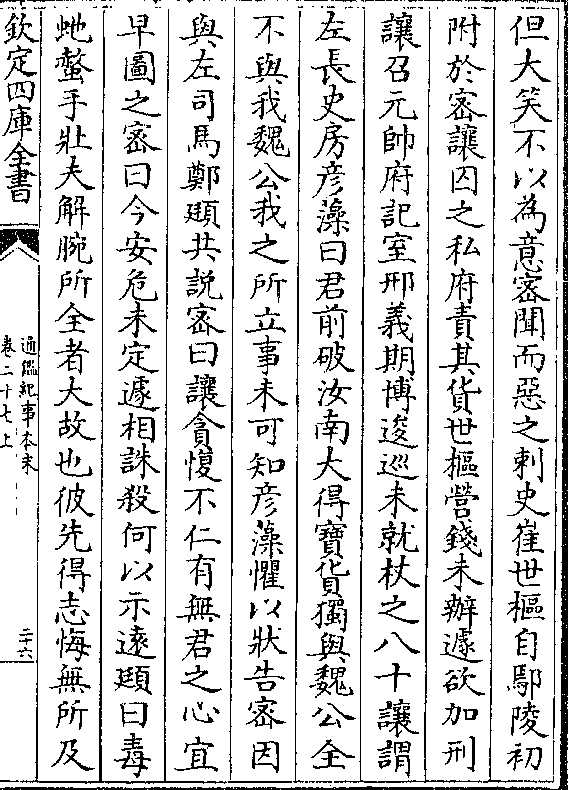 但大笑不以為意密聞而惡之刺史崔世樞自鄢陵初
附於密讓囚之私府責其貨世樞營錢未辦遽欲加刑
讓召元帥府記室邢義期博逡巡未就杖之八十讓謂
左長史房彦藻曰君前破汝南大得寶貨獨與魏公全
不與我魏公我之所立事未可知彦藻懼以狀告密因
與左司馬鄭頲共説密曰讓貪愎不仁有無君之心宜
早圖之密曰今安危未定遽相誅殺何以示逺頲曰毒
虵螫手壯夫解腕所全者大故也彼先得志悔無所及
欽定四庫全書
通鑑紀事本末
卷二十七上
二十六